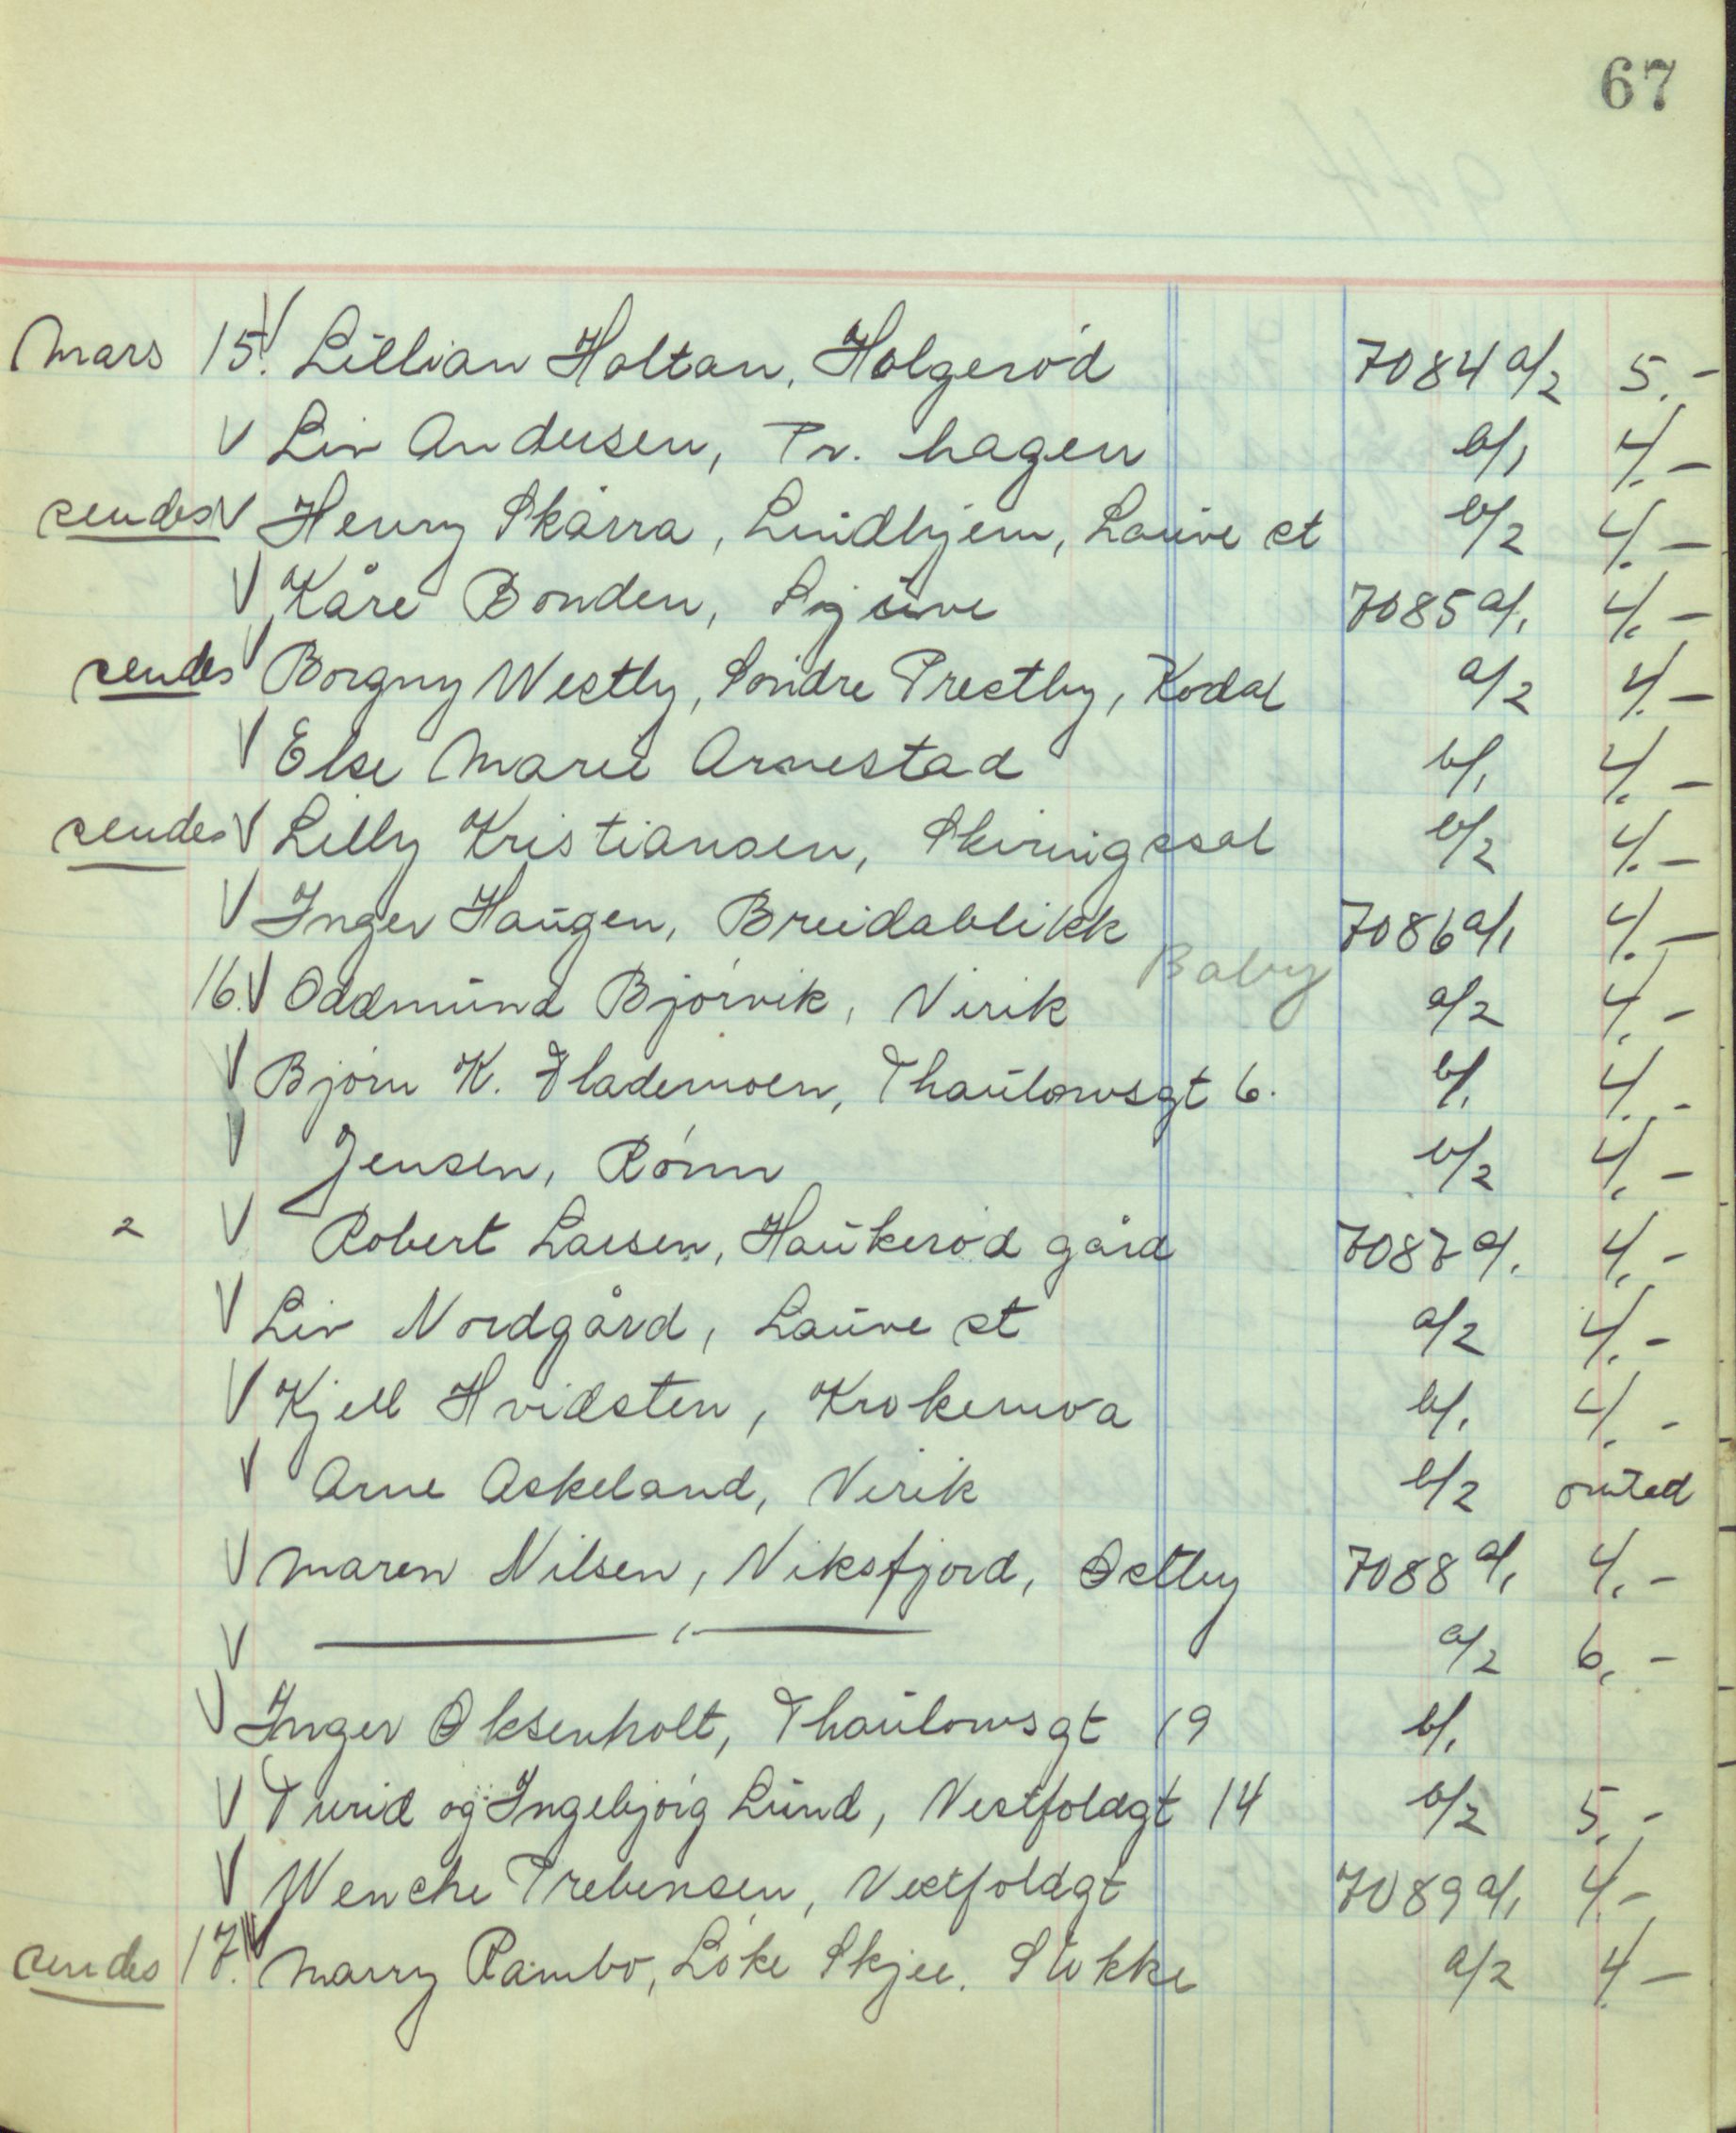 67
Mars 15. V Lillian Holtan, Holgerød 7084 a/2 5.-
V Liv Andersen, Pr. hagen b/1 4.-
sendes V Henry Skårra, Lindhjem, Lauve st b/2 4.-
V Kåre Bonden, Sjuve 7085 a/1 4.-
sendes V Borgny Westby, Söndre Prestby, Kodal a/2 4.-
V Else Marie Arnestad b/1 4.-
sendes V Lilly Kristiansen, Skiringssal b/2 4.-
V Inger Haugen, Breidablikk 7086 a/1 4.-
Baby
16. V Oddmund Bjørvik, Virik a/2 4.-
V Bjørn K. Flademoen, Thaulowsgt 6. b/1 4.-
V Jensen, Rønn b/2 4.-
2 V Robert Larsen, Haukerød gård 7087 a/1 4.-
V Liv Nordgård, Lauve st a/2 4.-
V Kjell Hvidsten, Krokemoa b/1 4.-
V Arne Askeland, Virik b/2 omtad
V Maren Nilsen, Viksfjord, Østby 7088 a/1 4.-
V —— " —— a/2 6.-
V Inger Øksenholt, Thaulowsgt 19 b/1
V Turid og Ingebjørg Lund, Vestfoldgt 14 b/2 5.-
V Wenche Prebensen, Vestfoldgt 7089 a/1 4.-
sendes 17. V Marry Rambo, Løke Skjee. Stokke a/2 4.-